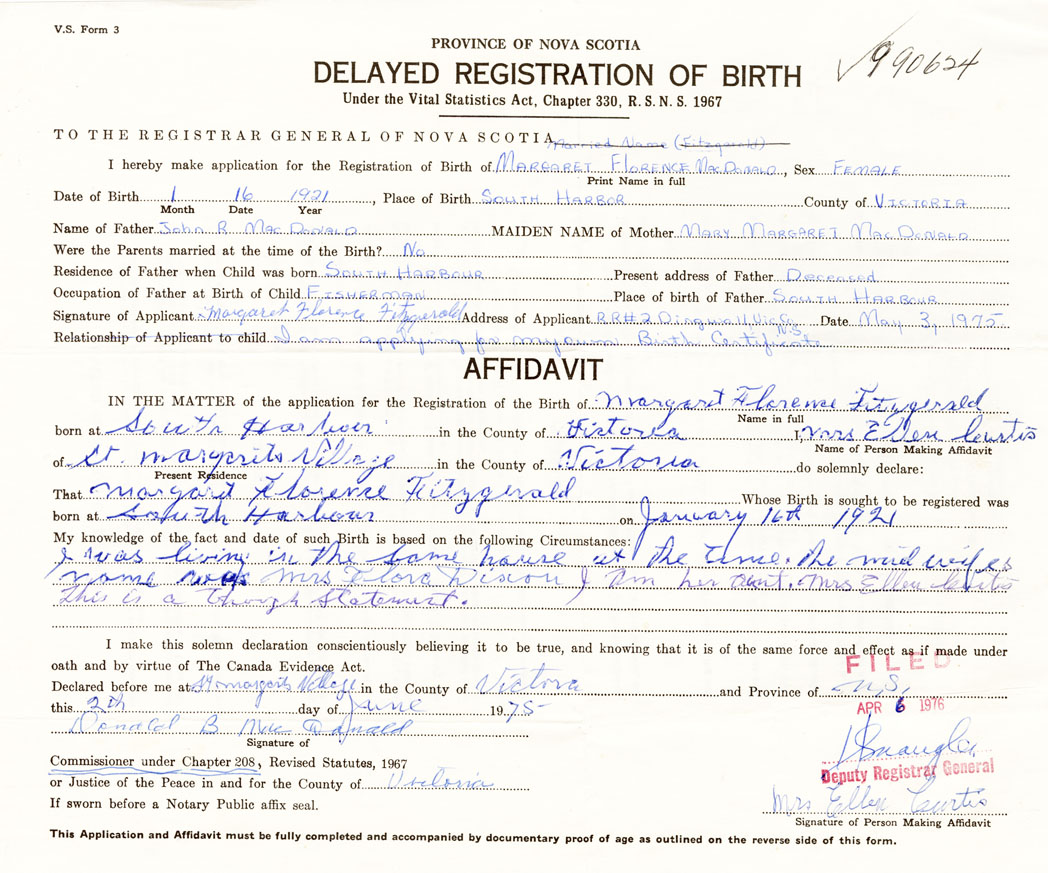 V.S. Form 3
PROVINCE OF NOVA SCOTIA
990624
DELAYED REGISTRATION OF BIRTH
Under the Vital Statistics Act, Chapter 330, R.S.N.S. 1967
TO THE REGISTRAR GENERAL OF NOVA SCOTIA Married Name (Fitzgerald)
I hereby make application for the Registration of Birth of MARGARET FLORENCE MACDONALD, Sex FEMALE
Print Name in full
Date of Birth 1 16 1921, Place of Birth SOUTH HARBOR County of VICTORIA
Month Date Year
Name of Father John R MacDonald MAIDEN NAME of Mother MARY MARGARET MACDONALD
Were the Parents married at the time of the Birth? No
Residence of Father when Child was born SOUTH HARBOUR Present address of Father Deceased
Occupation of Father at Birth of Child FISHERMAN Place of birth of Father SOUTH HARBOUR
Signature of Applicant Margaret Florence Fitzgerald Address of Applicant RR#2 Dingwall Vic Co. N.S. Date May 3, 1975
Relationship of Applicant to child I am applying for my own Birth Certificate
AFFIDAVIT
IN THE MATTER of the application for the Registration of the Birth of Margaret Florence Fitzgerald
Name in full
born at South Harbour in the County of Victoria I, Mrs Ellen Curtis
Name of Person Making Affidavit
of St. Margrits Village in the County of Victoria do solemnly declare:
Present Residence
That Margart Florence Fitzgerald Whose Birth is sought to be registered was
born at South Harbour on January 16th 1921
My knowledge of the fact and date of such Birth is based on the following Circumstances:
I was living in the same house at the time. the midwifes
name was Mrs Flora Dixon I am her aunt. Mrs Ellen Curtis
This is a Statement.
I make this solemn declaration conscientiously believing it to be true, and knowing that it is of the same force and effect as if made under
oath and by virtue of The Canada Evidence Act.
FILED
Declared before me at St Margrits Village in the County of Victora and Province of N.S.
this 2th day of June 1975
APR 6 1976
Donald B MacDonald
Signature of
Commissioner under Chapter 208, Revised Statutes, 1967
Deputy Registrar General
or Justice of the Peace in and for the County of Victoria
Mrs Ellen Curtis
If sworn before a Notary Public affix seal.
Signature of Person Making Affidavit
This Application and Affidavit must be fully completed and accompanied by documentary proof of age as outlined on the reverse side of this form.